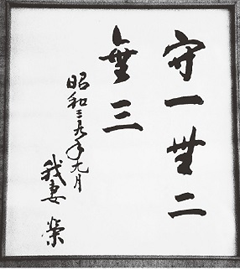 守一無二
無三
昭和三九年九月
我妻 榮